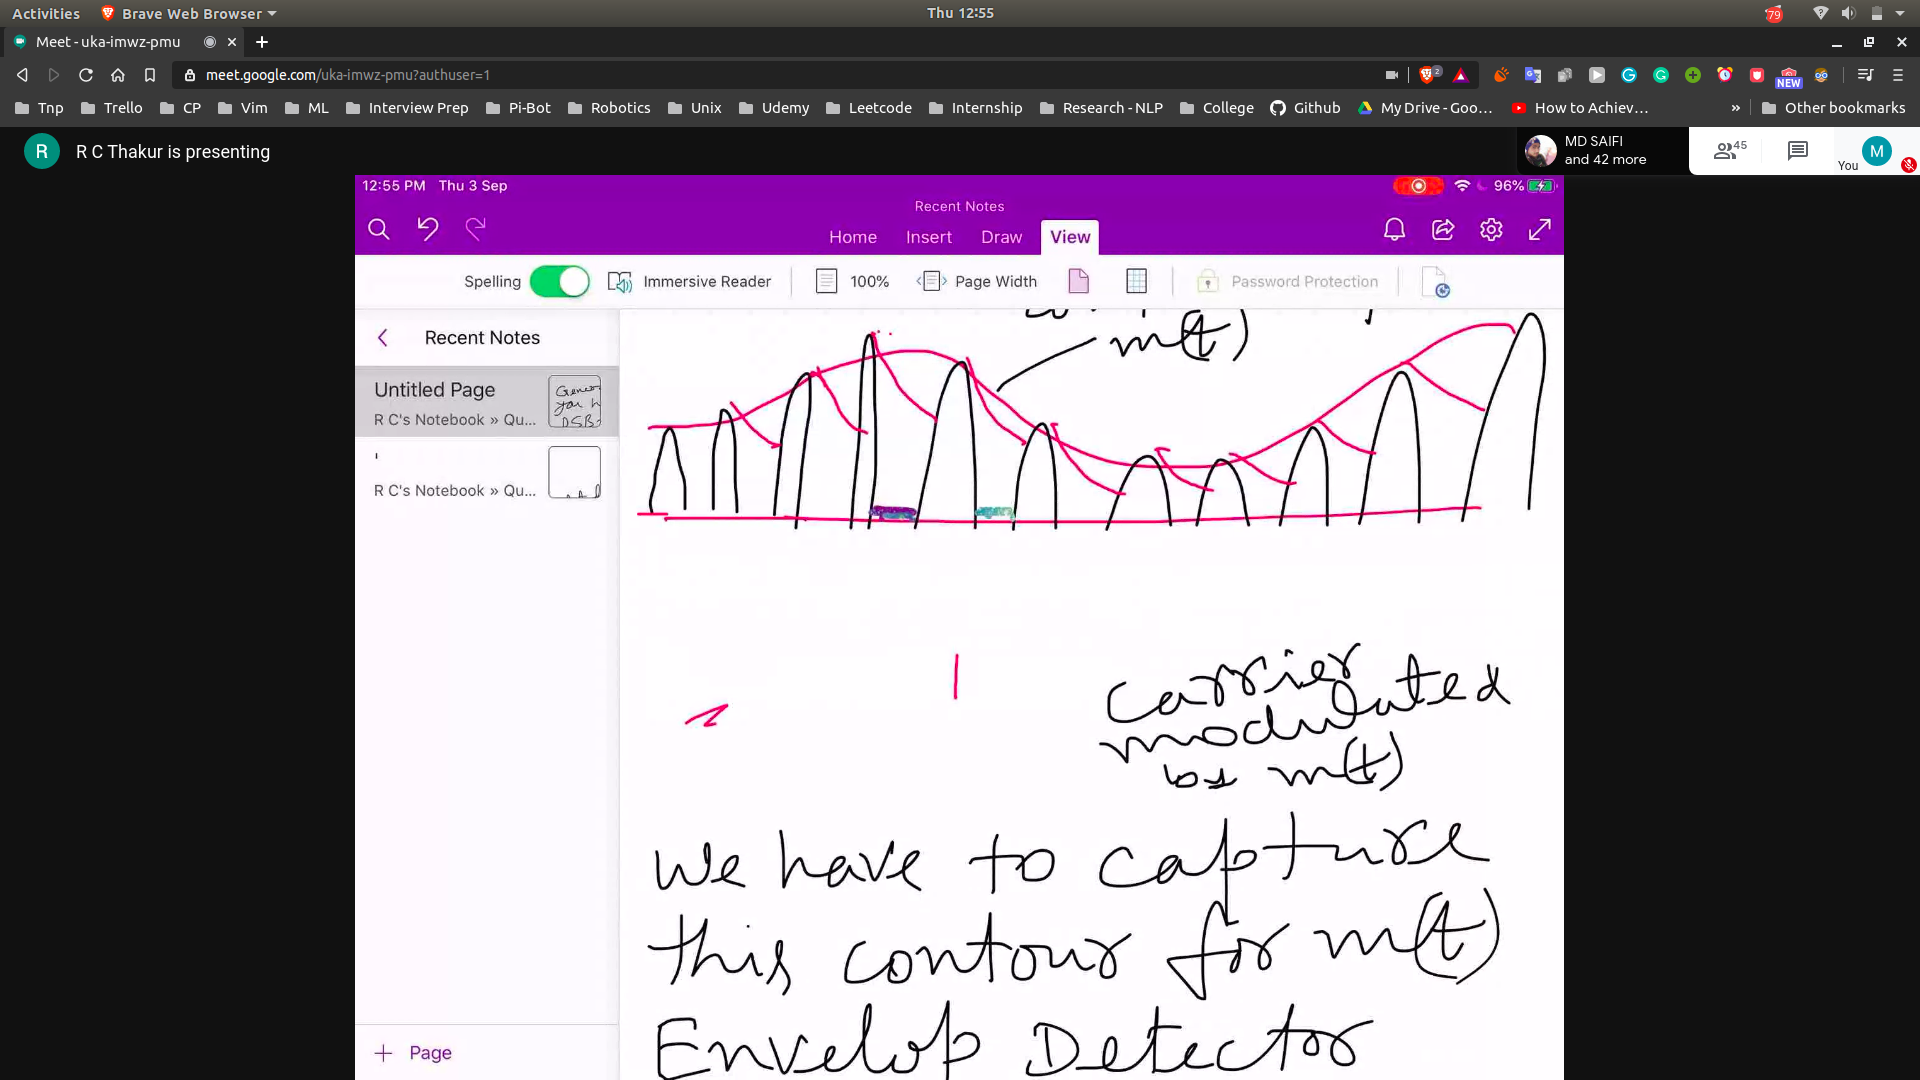 Activities Brave Web Browser Thu 12:55 79
Meet - uka-imwz-pmu
meet.google.com/uka-imwz-pmu?authuser=1 2 NEW
Tnp Trello CP Vim ML Interview Prep Pi-Bot Robotics Unix Udemy Leetcode Internship Research - NLP College Github My Drive - Goo... How to Achiev... » Other bookmarks
R R C Thakur is presenting
MD SAIFI
and 42 more
45
You M
12:55 PM Thu 3 Sep 96%
Recent Notes
Home Insert Draw View
Spelling Immersive Reader 100% Page Width Password Protection
Recent Notes
Untitled Page
R C's Notebook » Qu...
R C's Notebook » Qu...
DSB
m(t)
Carrier
modulated
by m(t)
We have to capture
this contour for m(t)
Envelop Detector
+ Page